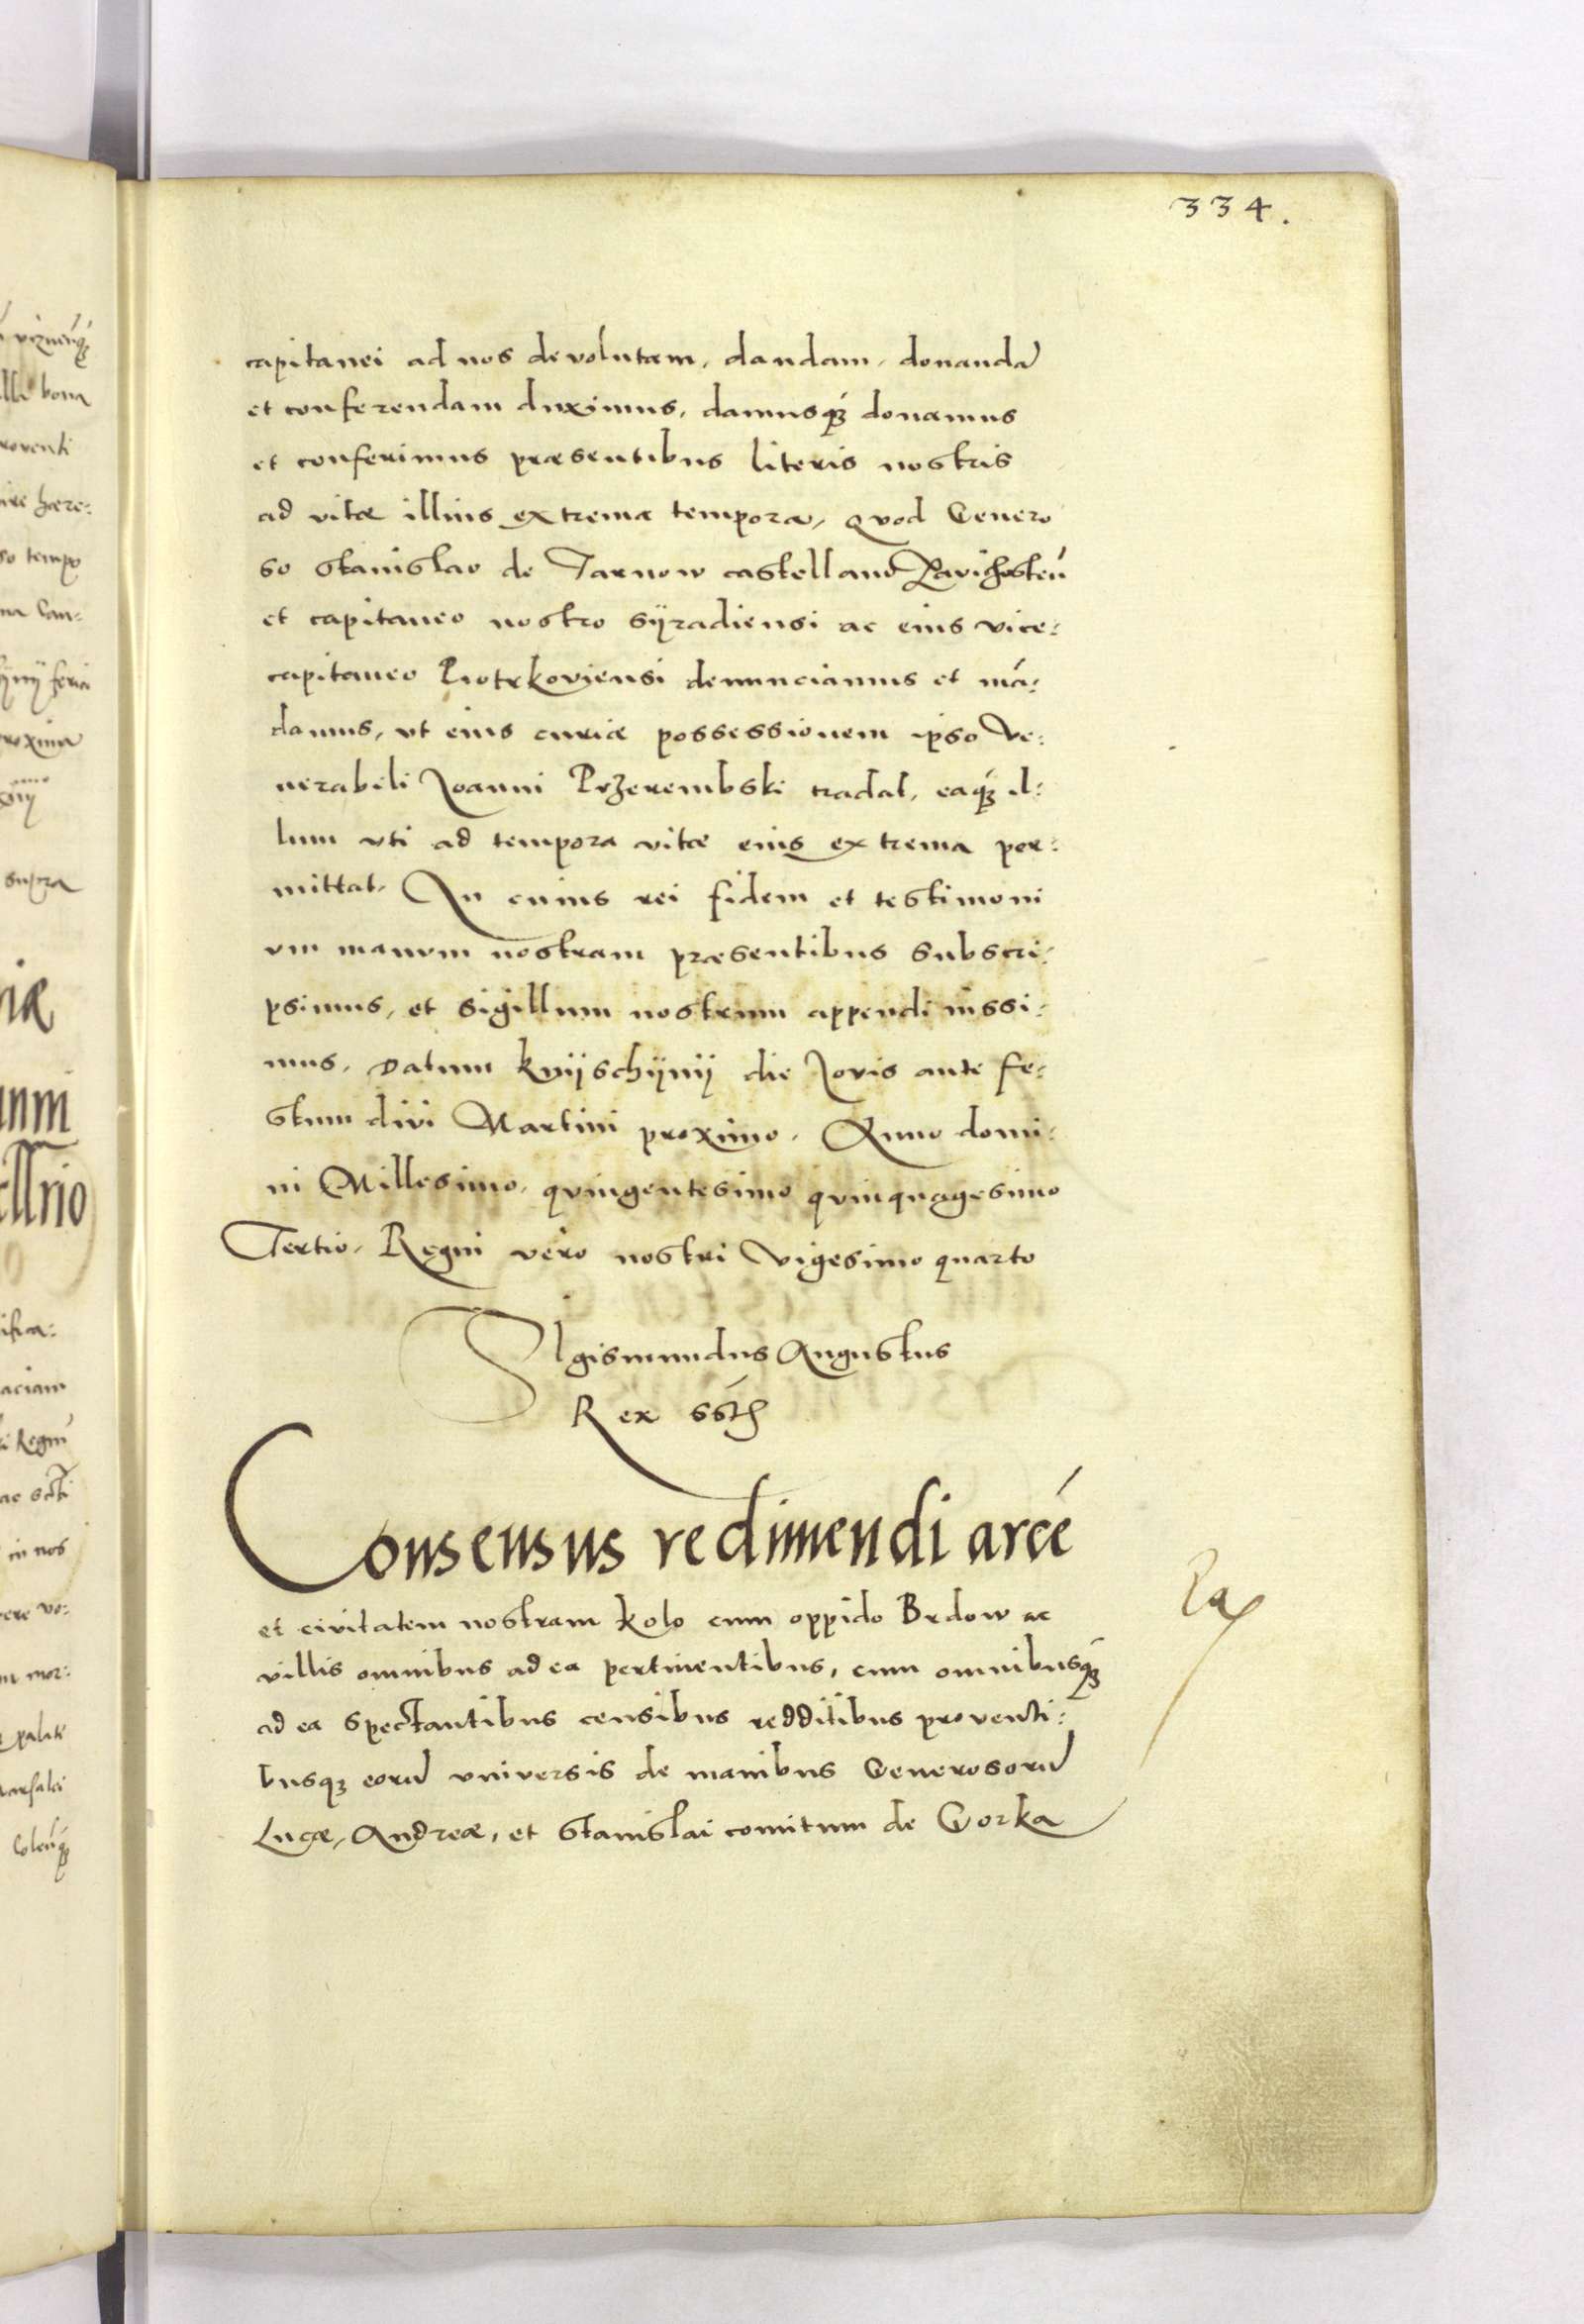 334.
capitanei ad nos devolutam, dandam, donandā
et conferendam duximus, damusq́ꝫ donamus
et conferimus præsentibus literis nostris
ad vitæ illius extrema tempora, Qvod Genero
so Stanislao de Tarnow castellano Zavichosteń
et capitaneo nostro Sÿradiensi ac eius vice:
capitaneo Piotrkoviensi denunciamus et mā:
damus, vt eius curiæ possessionem ipso Ve:
nerabili Joanni Przerembski tradat, eaq́ꝫ il:
lum vti ad tempora vitæ eius extrema per:
mittat. In cuius rei fidem et testimoni
vm manvm nostram præsentibus subscri:
psimus, et sigillum nostrum appendi iussi:
mus. Datum Knÿschÿnÿ die Jovis ante fe:
stum divi Martini proximo. Anno domi:
ni Millesimo, qvingentesimo qvinquagesimo
Tertio, Regni vero nostri Vigesimo quarto
SIgismundus Augustus
Rex ssť
Consensus redimendi arcē
et civitatem nostram Kolo cum oppido Brdow ac
villis omnibus ad ea pertinentibus, cum omnibusq́ꝫ
ad ea spectantibus censibus redditibus proventi:
busqꝫ eorū vniversis de manibus Generosorū
Lucæ, Andreæ, et Stanislai comitum de Gorka